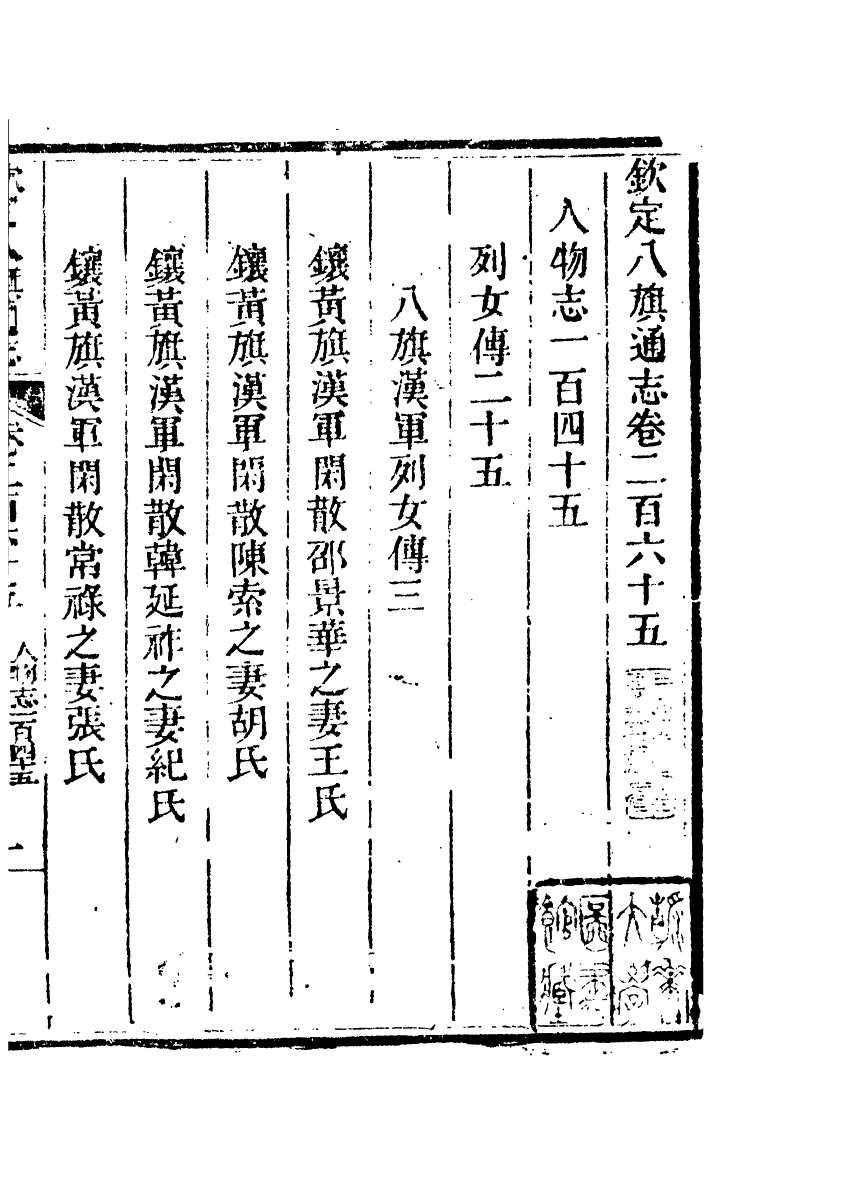 欽定八旗通志卷二百六十五
人物志一百四十五
列女傳二十五
八旗漢軍列女傳三
鑲黃旗漢軍閑散邵景華之妻王氏
鑲黃旗漢軍閑散陳索之妻胡氏
鑲黃旗漢軍閑散韓延祚之妻紀氏
鑲黃旗漢軍閑散常祿之妻張氏
人物志一百四十五